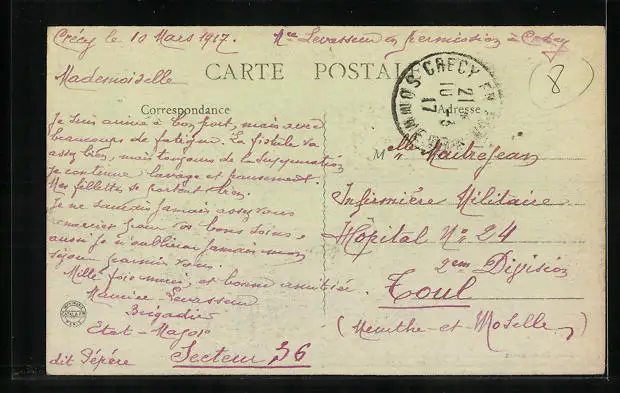 Crécy le 10 Mars 1917. Mce Levasseur en permission à Crécy
Mademoiselle
CARTE POSTALE
Correspondance
Je suis arrivé à bon port, mais avec
beaucoups de fatigue. La fistule va
assez bien, mais toujours de la suppuration
je continue lavage et pansement.
Mes fillettes se portent bien.
Je ne saurais jamais assez vous
remercier pour vos bons soins,
aussi je n'oublierai jamais mon
séjour parmi vous.
Mille fois merci et bonne amitiée.
Maurice Levasseur
Brigadier
Etat-Major
dit Pépère Secteur 36
Adresse
CRECY EN
21 - 3
10
17
SOMME
8
Melle Maitrejean
Infirmière Militaire
Hôpital No 24
2em Division
Toul
(Meurthe-et-Moselle)